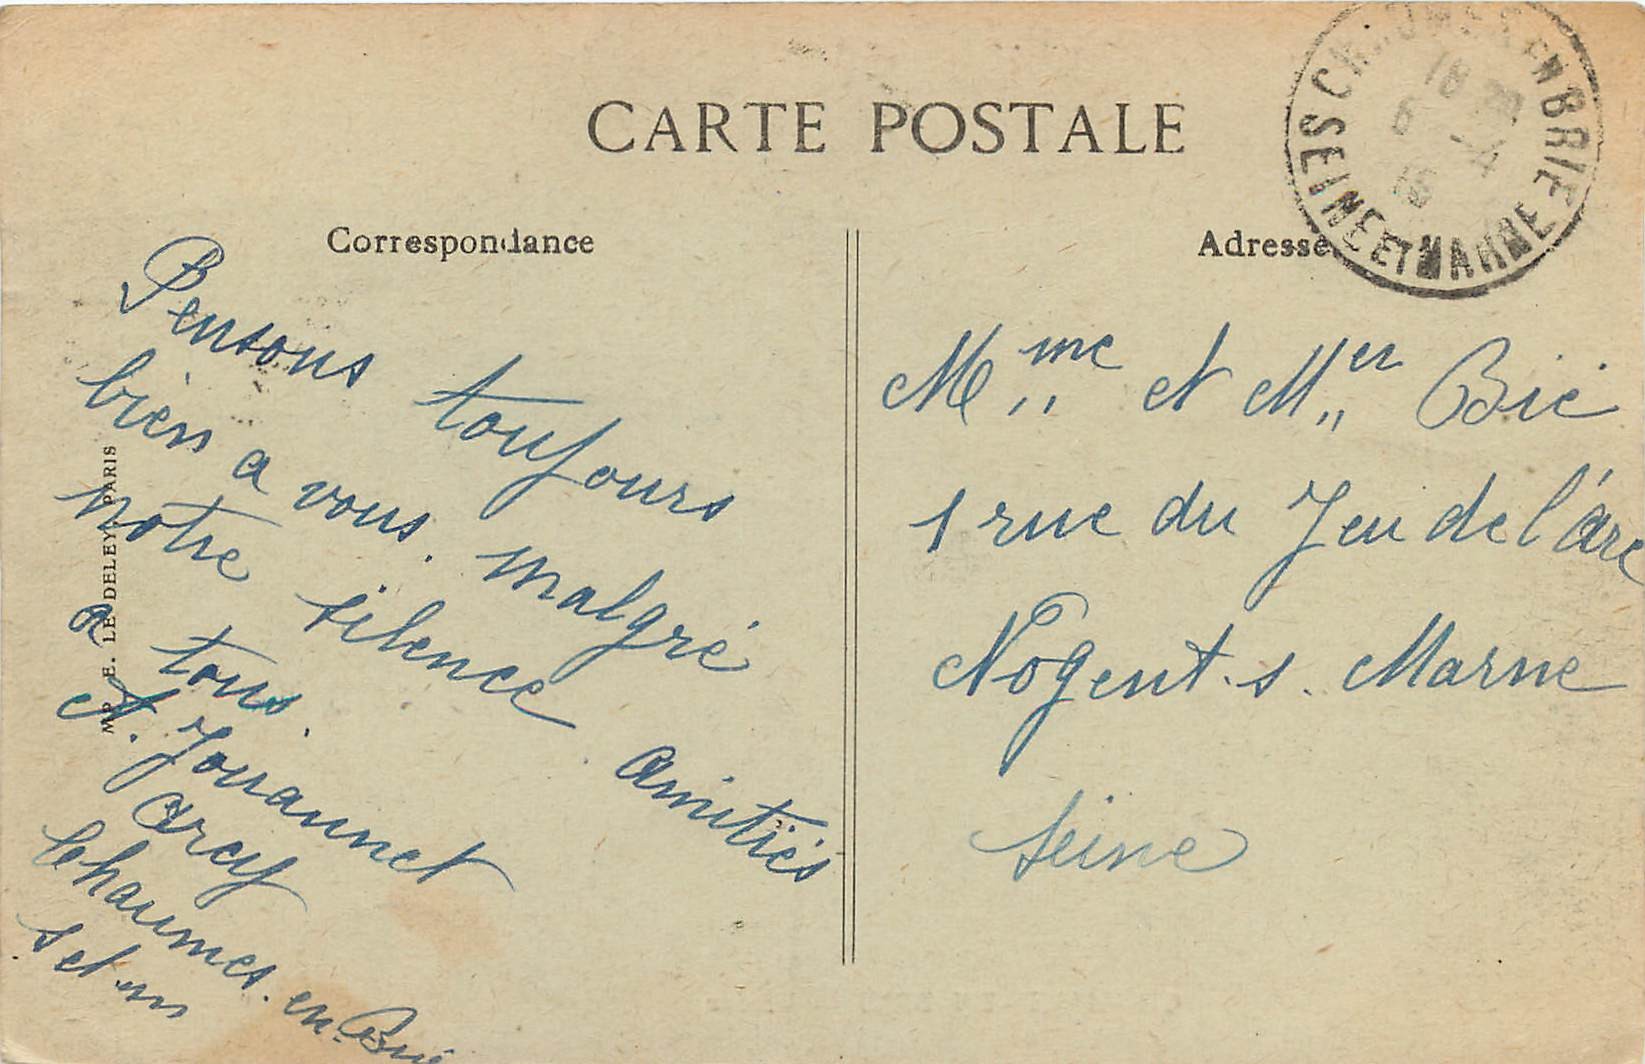 CARTE POSTALE
Correspondance
Pensons toujours
bien a vous. malgré
notre silence. amitiés
a tous.
A. Jouannet
Arcy
Chaumes. en. Brie
S et m
MP. E. LE DELEY PARIS
Adresse
Mme et Mer Bié
1 rue du Jeu de l'arc
Nogent. s. Marne
Seine
EN BRIE
SEINE ET MARNE
18
6 -4